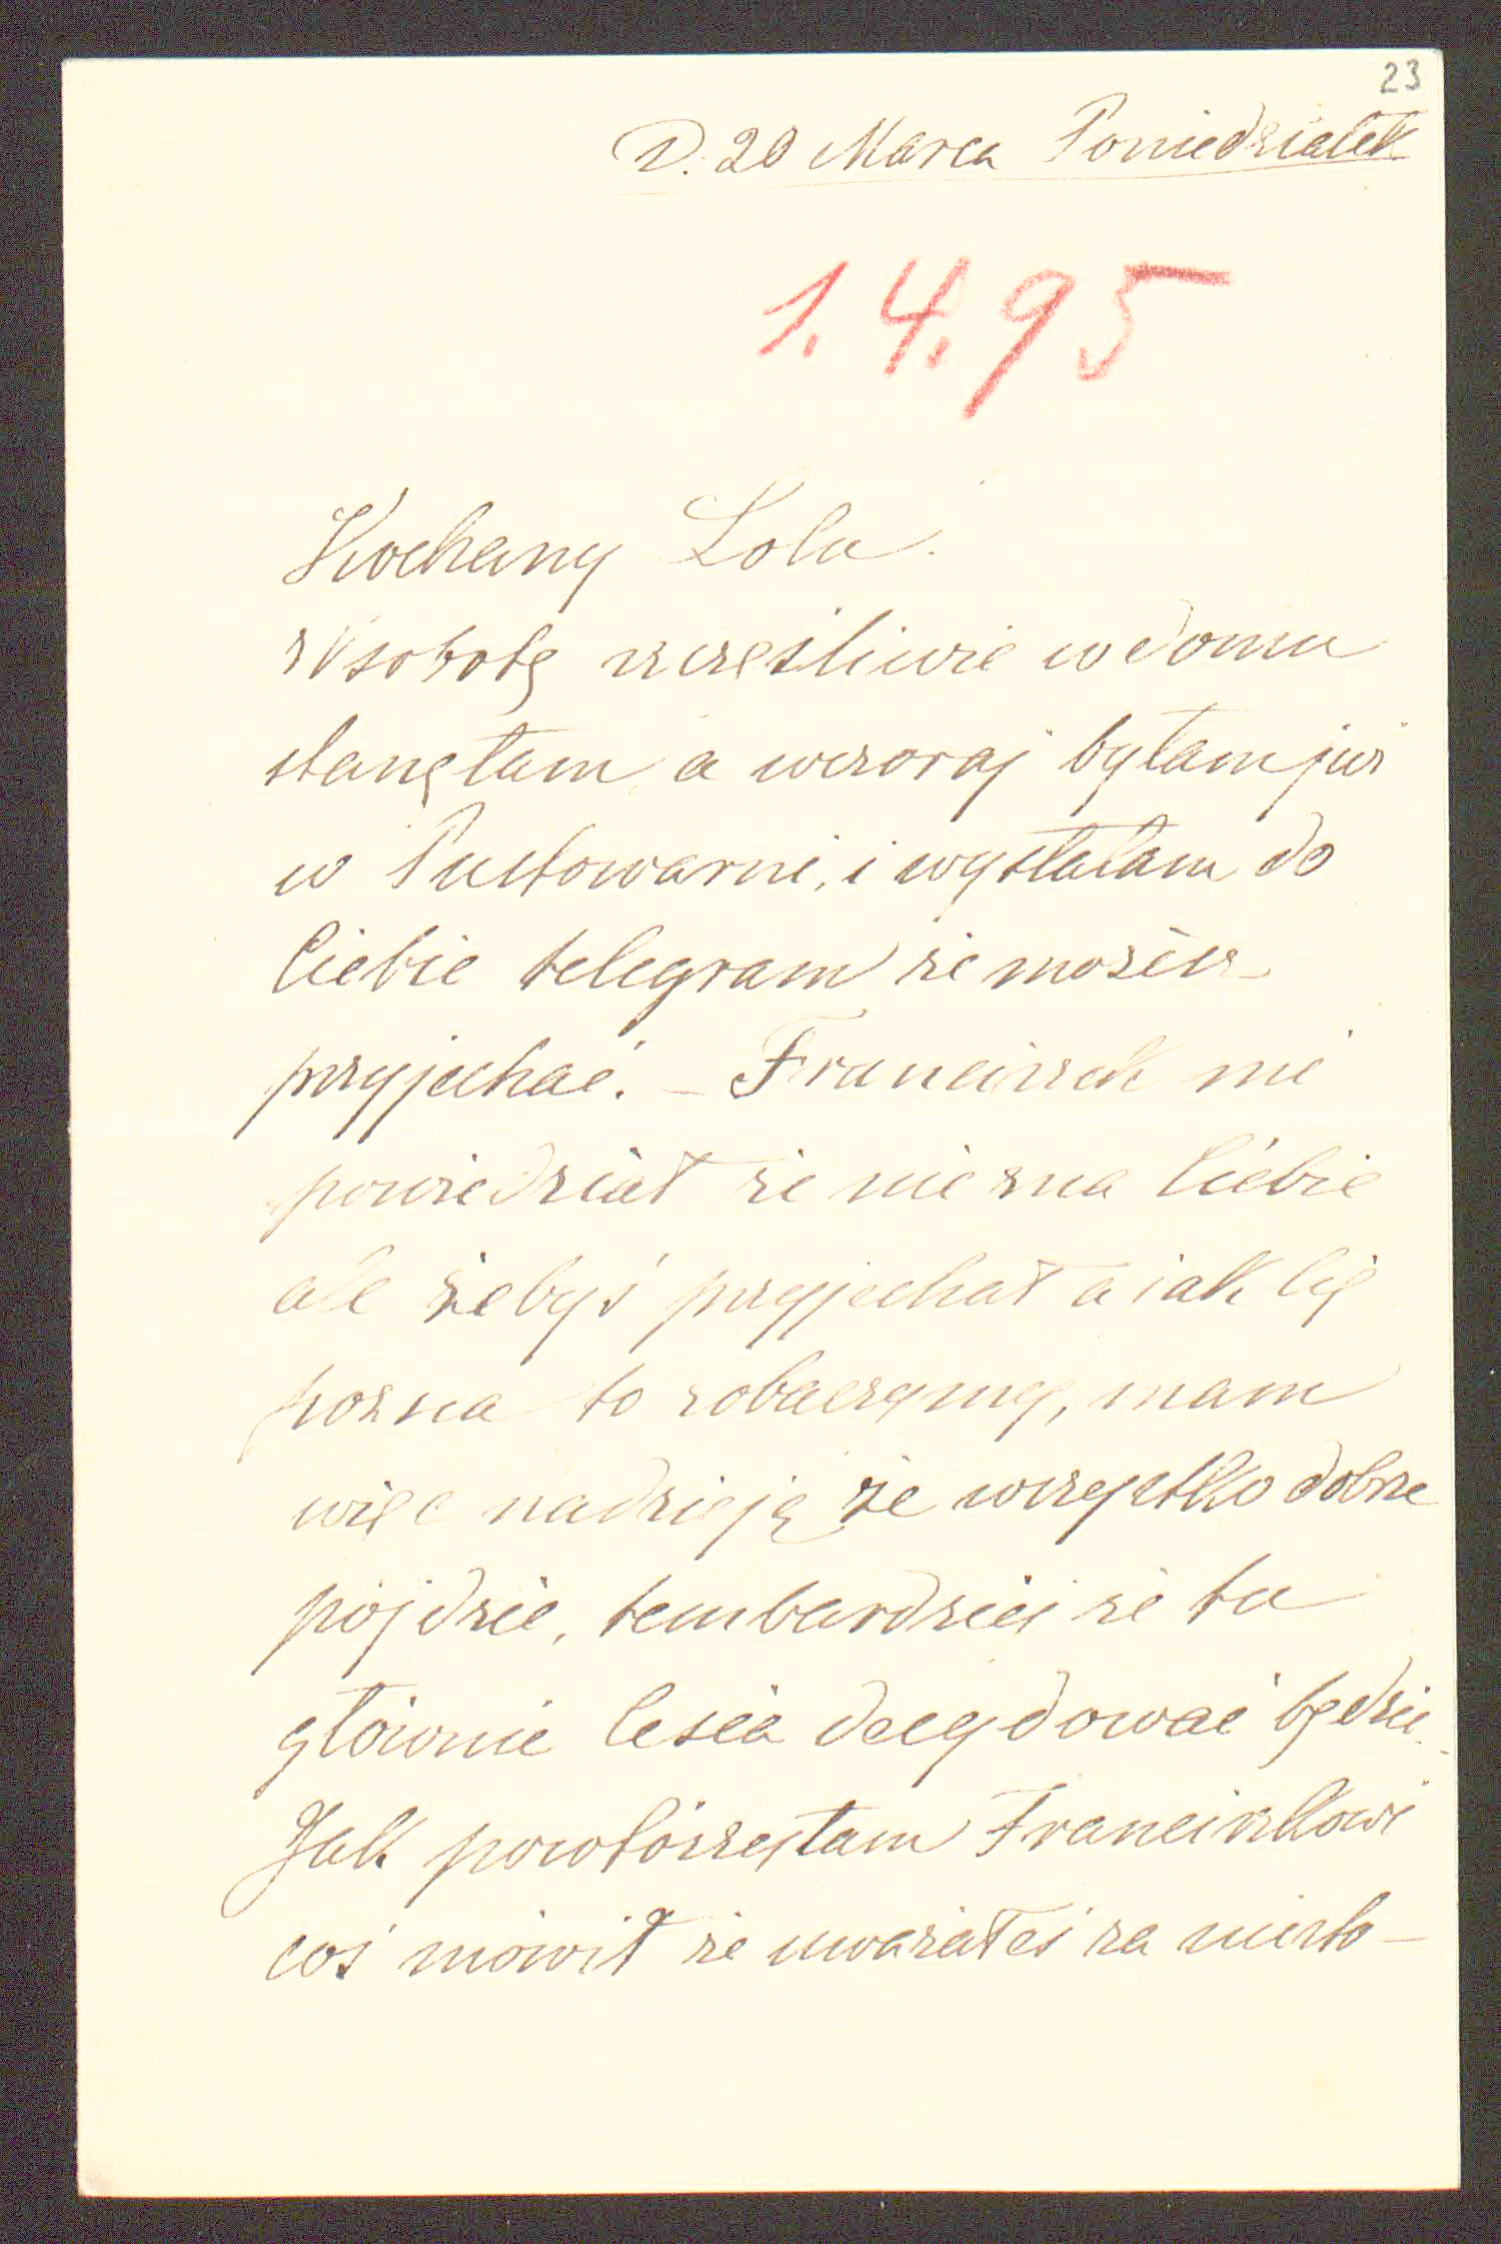 23
D. 20 Marca Poniedziałek
1.4.95
Kochany Lolu.
W sobotę szczęśliwie w domu
stanęłam, a wczoraj byłam już
w Pustowarni, i wysłałam do
Ciebie telegram że możesz
przyjechać. – Franciszek nie
powiedział że nie zna Ciebie
ale żebyś przyjechał a jak Cię
pozna to zobaczymy, mam
więc nadzieję że wszystko dobrze
pójdzie, tembardziej że tu
głównie Cesia decydować będzie.
Jak powtórzyłam Franciszkowi
coś mówił że uważałeś za niesto-